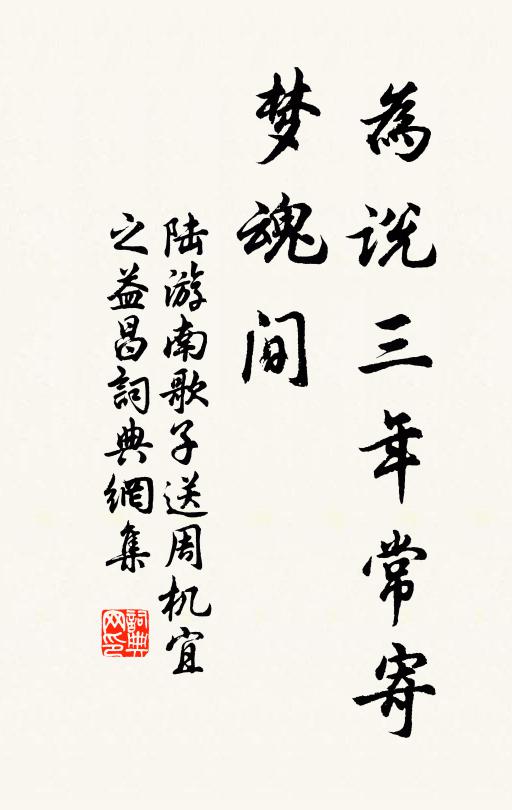 為说三年常寄
梦魂间
陆游南歌子送周机宜
之益昌詞典網集
詞典
网印